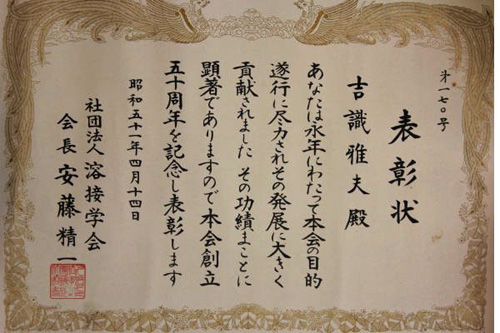 第一七〇号
表彰状
吉識雅夫殿
あなたは永年にわたって本会の目的
遂行に尽力されその発展に大きく
貢献されました その功績まことに
顕著でありますので本会創立
五十周年を記念し表彰します
昭和五十一年四月十四日
社団法人 溶接学会
会長 安藤精一